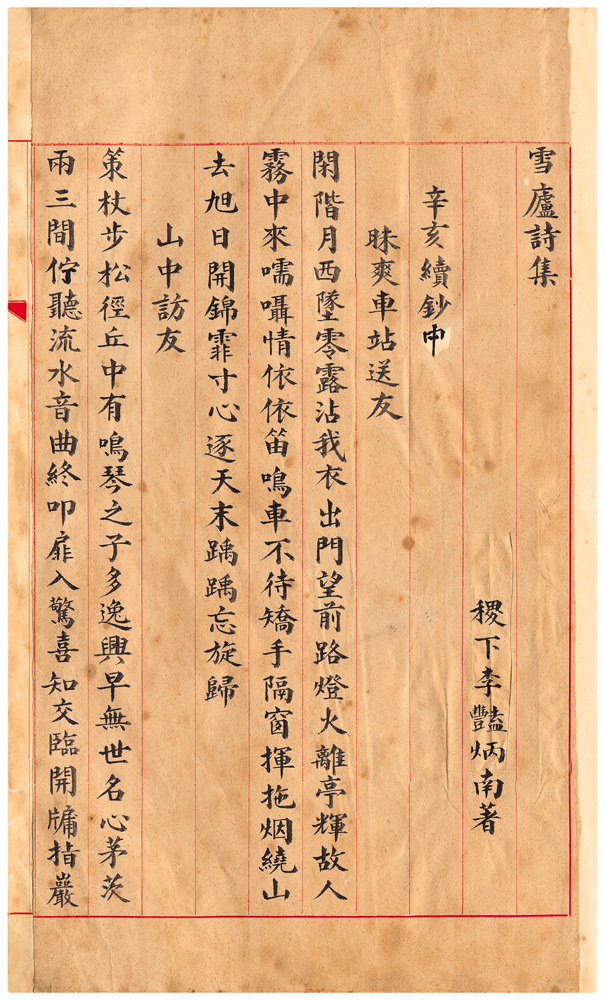 雪廬詩集
稷下李豔炳南著
辛亥續鈔中
昧爽車站送友
閑階月西墜零露沾我衣出門望前路燈火離亭輝故人
霧中來嚅囁情依依笛鳴車不待矯手隔窗揮拖烟繞山
去旭日開錦霏寸心逐天末踽踽忘旋歸
山中訪友
策杖步松徑丘中有鳴琴之子多逸興早無世名心茅茨
兩三間佇聽流水音曲終叩扉入驚喜知交臨開牖指巖